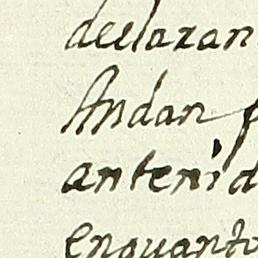 declaran
Andan
antenid
enquanto